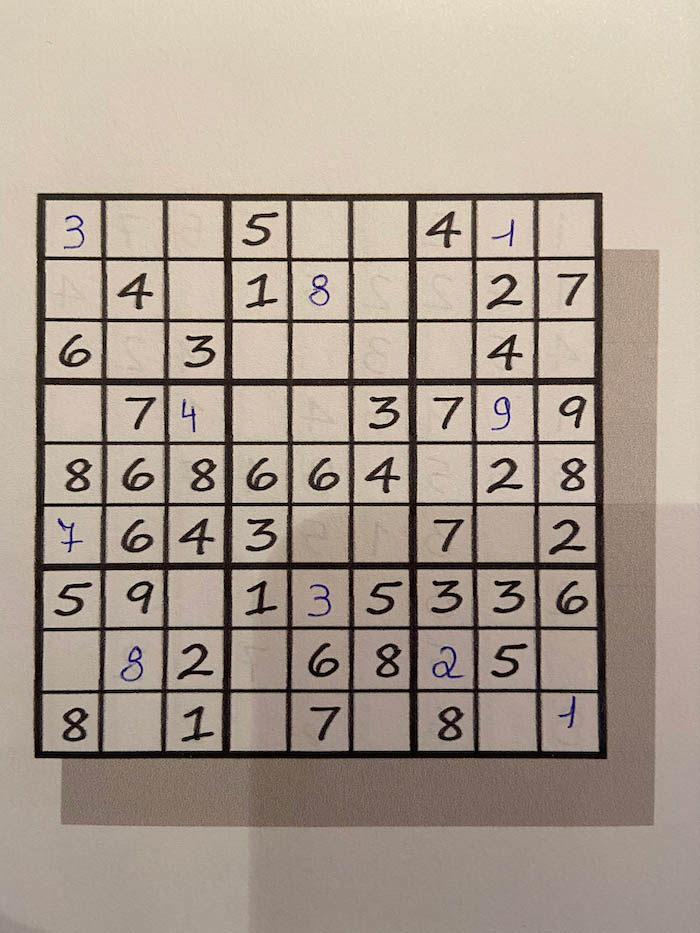 3 5 4 1
4 1 8 2 7
6 3 4
7 4 3 7 9 9
8 6 8 6 6 4 2 8
7 6 4 3 7 2
5 9 1 3 5 3 3 6
8 2 6 8 2 5
8 1 7 8 1